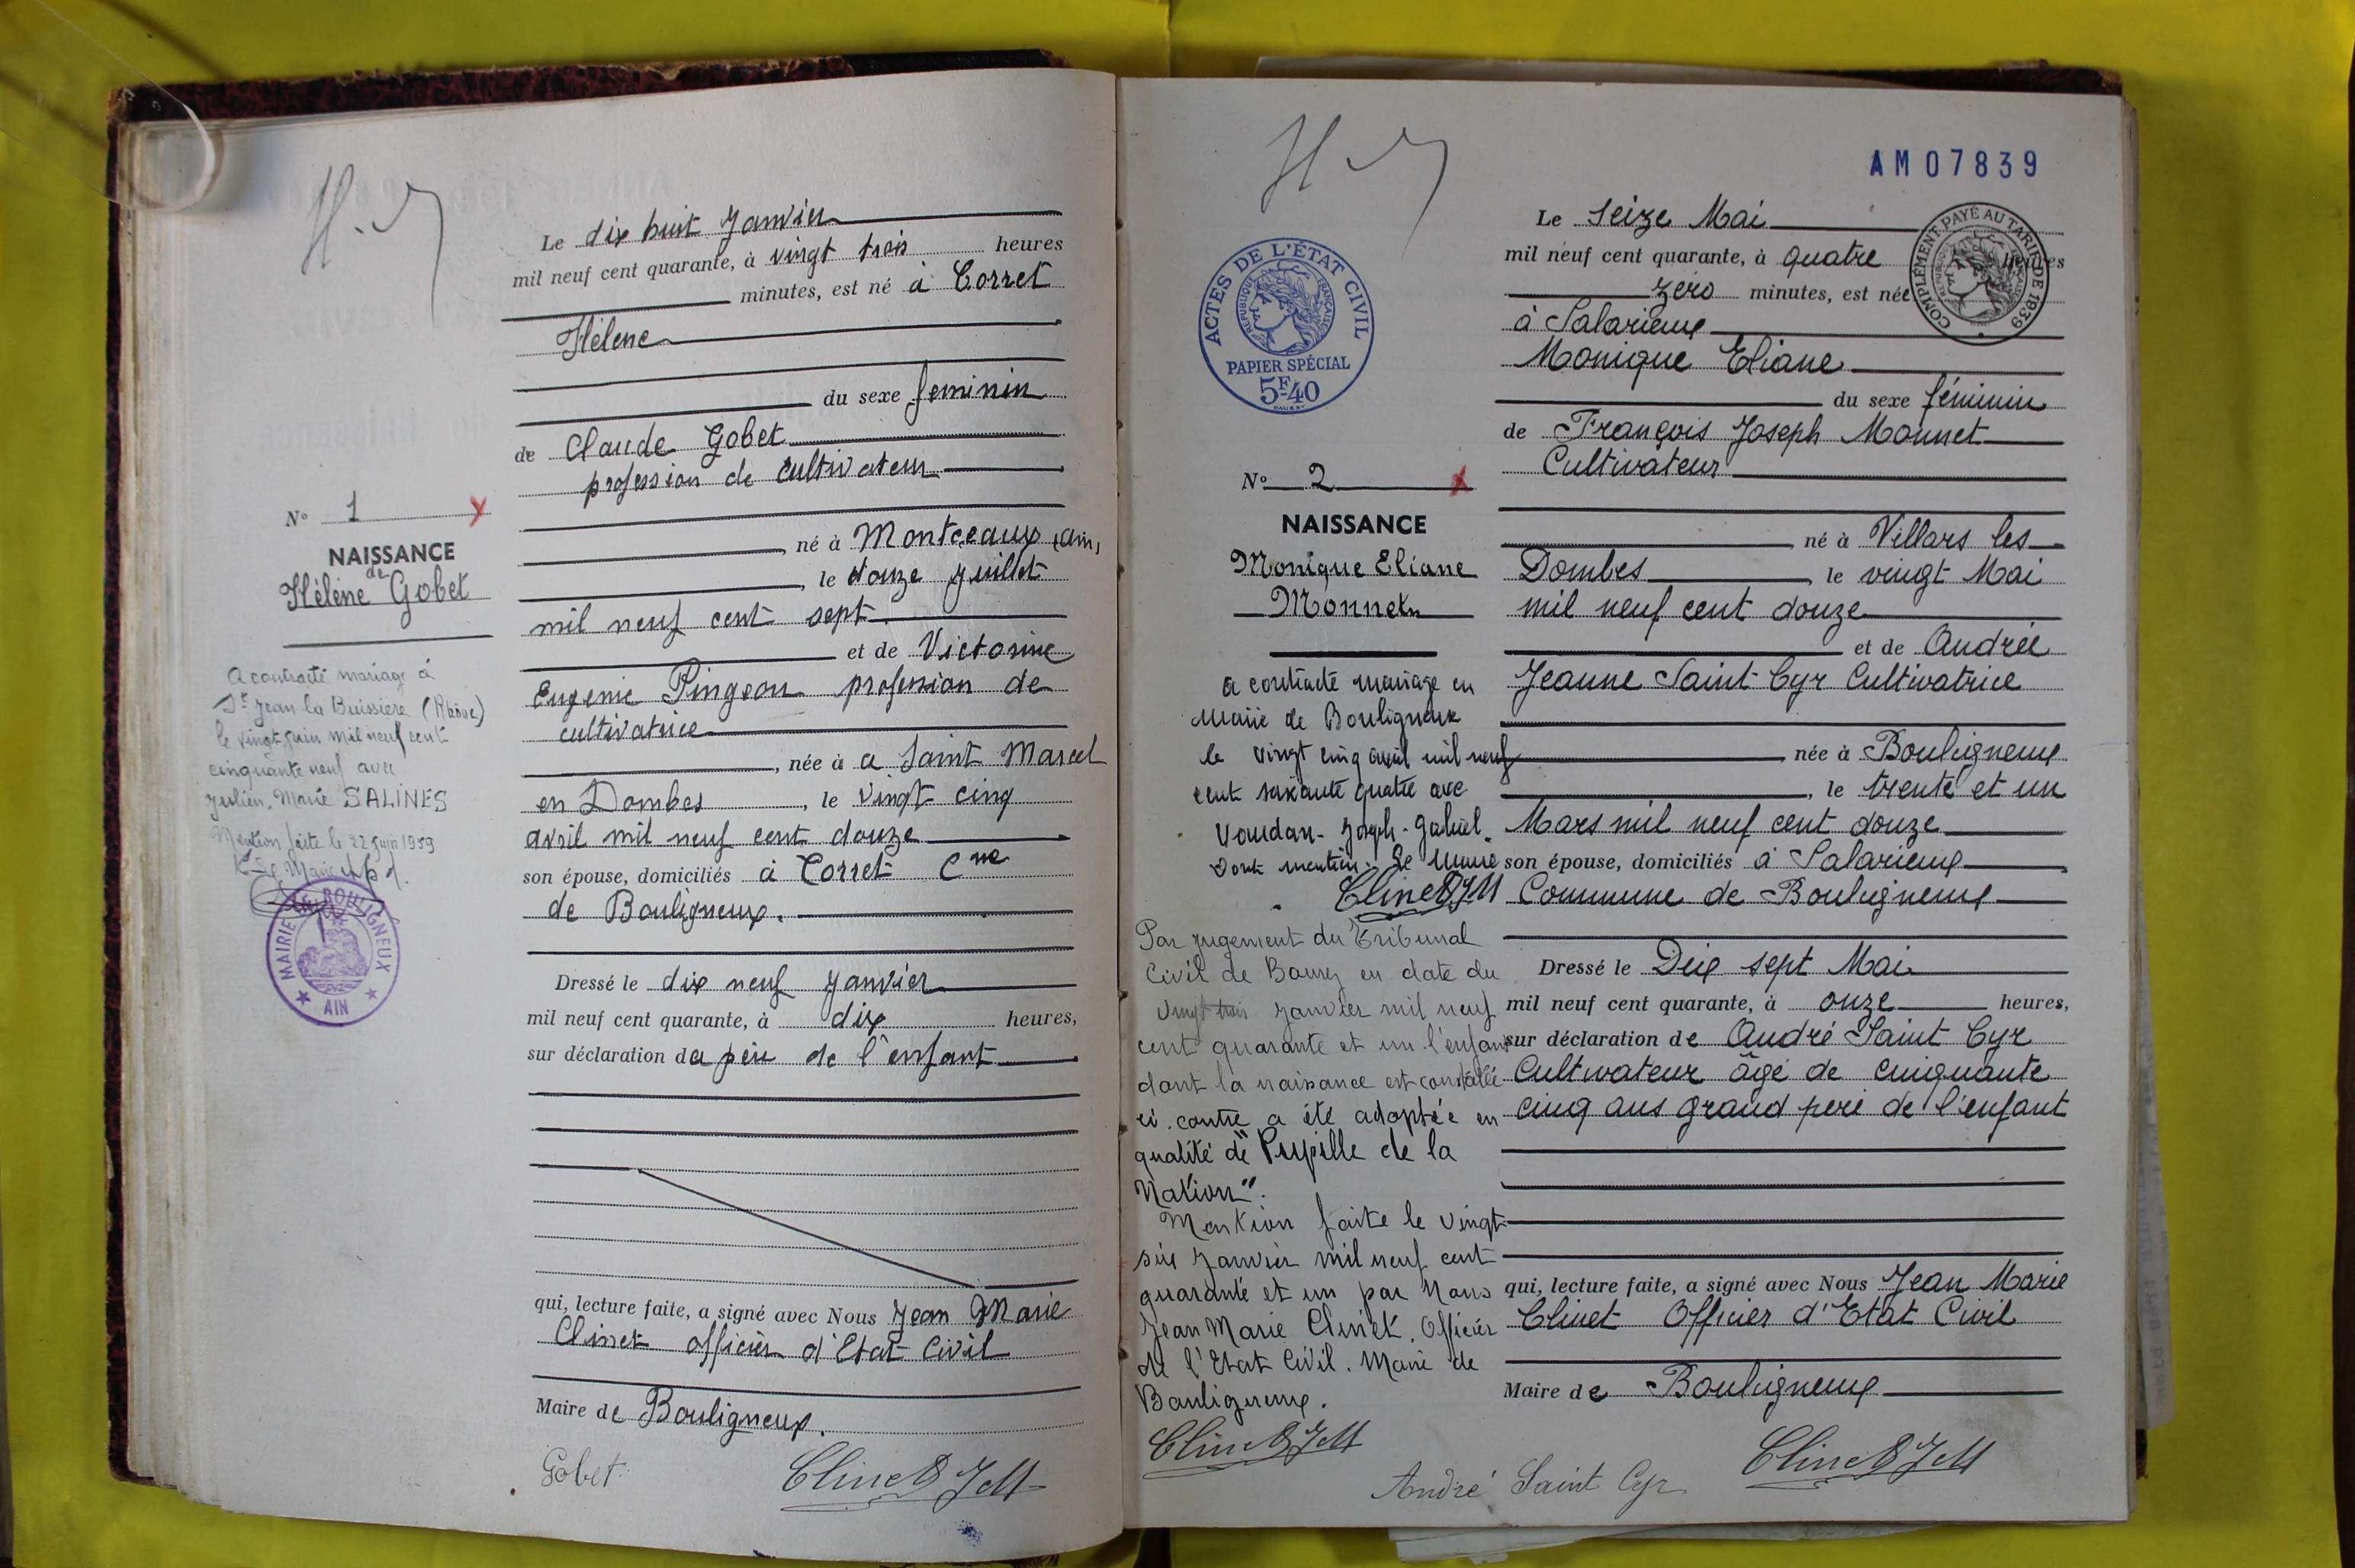 H.
Le dix huit Janvier
mil neuf cent quarante, à vingt trois heures
minutes, est né à Corret
Hélène
du sexe feminin
de Claude Gobet
profession de cultivateur
né à Montceaux (Ain)
, le douze Juillet
mil neuf cent sept
et de Victorine
Eugenie Pingeon profession de
cultivatrice
, née à a Saint Marcel
en Dombes , le vingt cinq
avril mil neuf cent douze
son épouse, domiciliés à Corret Cne
de Bouligneux.
Dressé le dix neuf Janvier
mil neuf cent quarante, à dix heures,
sur déclaration du père de l'enfant
qui, lecture faite, a signé avec Nous Jean Marie
Clinet officier d'Etat Civil
Maire de Bouligneux.
Gobet Clinet JM
N° 1
NAISSANCE
de
Hélène Gobet
A contracté mariage à
St Jean la Bussière (Rhône)
le vingt juin mil neuf cent
cinquante neuf avec
Julien, Marie SALINES
Mention faite le 22 Juin 1959
Le Maire
MAIRIE DE BOULIGNEUX
AIN
H.
AM07839
ACTES DE L'ÉTAT CIVIL
RÉPUBLIQUE FRANÇAISE
PAPIER SPÉCIAL
5F40
COMPLÉMENT PAYÉ AU TARIF DE 1939
Le seize Mai
mil neuf cent quarante, à quatre heures
zéro minutes, est née
à Salarieux
Monique Eliane
du sexe féminin
de François Joseph Monnet
Cultivateur
né à Villars les
Dombes , le vingt Mai
mil neuf cent douze
et de Andrée
Jeanne Saint Cyr Cultivatrice
née à Bouligneux
, le trente et un
Mars mil neuf cent douze
son épouse, domiciliés à Salarieux
Commune de Bouligneux
Dressé le Dix sept Mai
mil neuf cent quarante, à onze heures,
sur déclaration de André Saint Cyr
Cultivateur âgé de cinquante
cinq ans grand père de l'enfant
qui, lecture faite, a signé avec Nous Jean Marie
Clinet Officier d'Etat Civil
Maire de Bouligneux
André Saint Cyr Clinet JM
N° 2
NAISSANCE
Monique Eliane
Monnet
a contracté mariage en
Mairie de Bouligneux
le vingt cinq avril mil neuf
cent soixante quatre avec
Vaudan - Joseph - Gabriel.
Dont mention. Le Maire
Clinet JM
Par jugement du Tribunal
Civil de Bourg en date du
vingt trois Janvier mil neuf
cent quarante et un l'enfant
dont la naissance est constatée
ci. contre a été adoptée en
qualité de "Pupille de la
Nation".
Mention faite le vingt
six Janvier mil neuf cent
quarante et un par Nous
Jean Marie Clinet. Officier
de l'Etat Civil. Maire de
Bouligneux.
Clinet JM